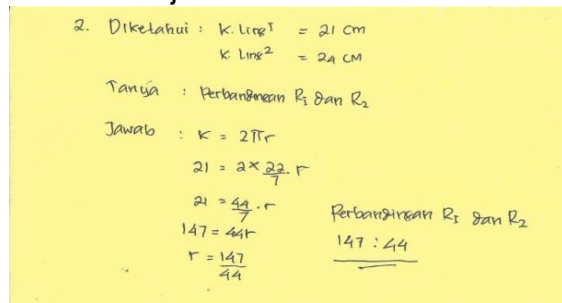 2. Diketahui : K. Ling 1 = 21 cm
K. Ling 2 = 24 cm
Tanya : Perbandingan R1 dan R2
Jawab : K = 2πr
21 = 2 × 22/7 . r
21 = 44/7 . r
147 = 44r
r = 147/44
Perbandingan R1 dan R2
147 : 44